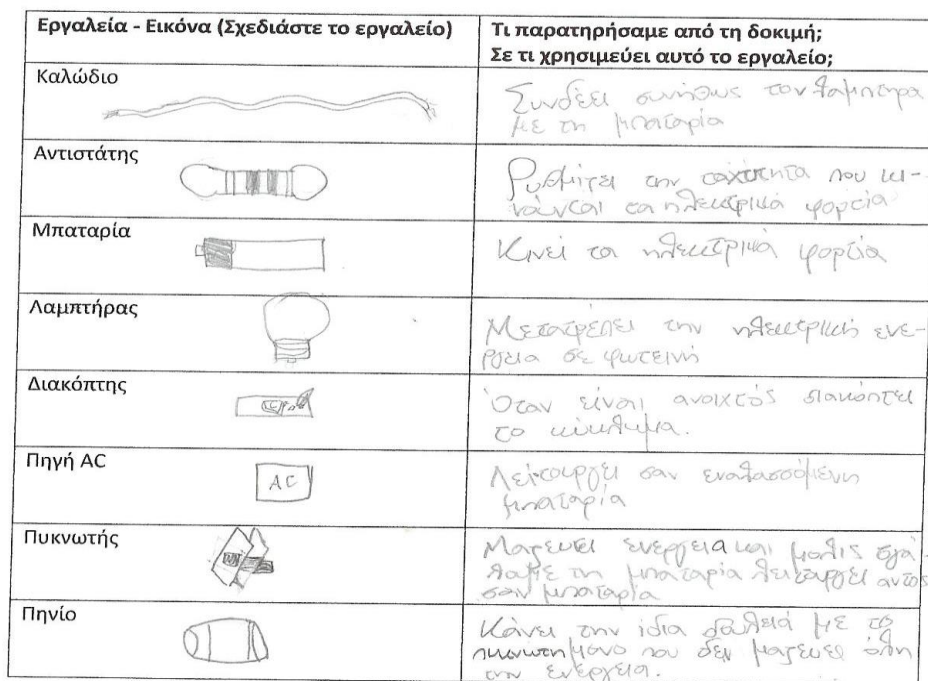 Εργαλεία - Εικόνα (Σχεδιάστε το εργαλείο)
Τι παρατηρήσαμε από τη δοκιμή;
Σε τι χρησιμεύει αυτό το εργαλείο;
Καλώδιο
Συνδέει συνήθως τον λαμπτηρα
με τη μπαταρία
Αντιστάτης
Ρυθμίζει την ταχύτητα που κι-
νούνται τα ηλεκτρικά φορτία
Μπαταρία
Κινεί τα ηλεκτρικά φορτία
Λαμπτήρας
Μετατρέπει την ηλεκτρική ενε-
ργεια σε φωτεινή
Διακόπτης
Όταν είναι ανοιχτός διακόπτει
το κύκλωμα.
Πηγή AC
AC
Λειτουργεί σαν εναλασσόμενη
μπαταρία
Πυκνωτής
Μαζευει ενεργεια και μολις βγά-
λαμε τη μπαταρία λειτουργεί αυτός
σαν μπαταρία
Πηνίο
Κάνει την ίδια δουλειά με το
πυκνωτη μονο που δεν μαζευει όλη
την ενέργεια.